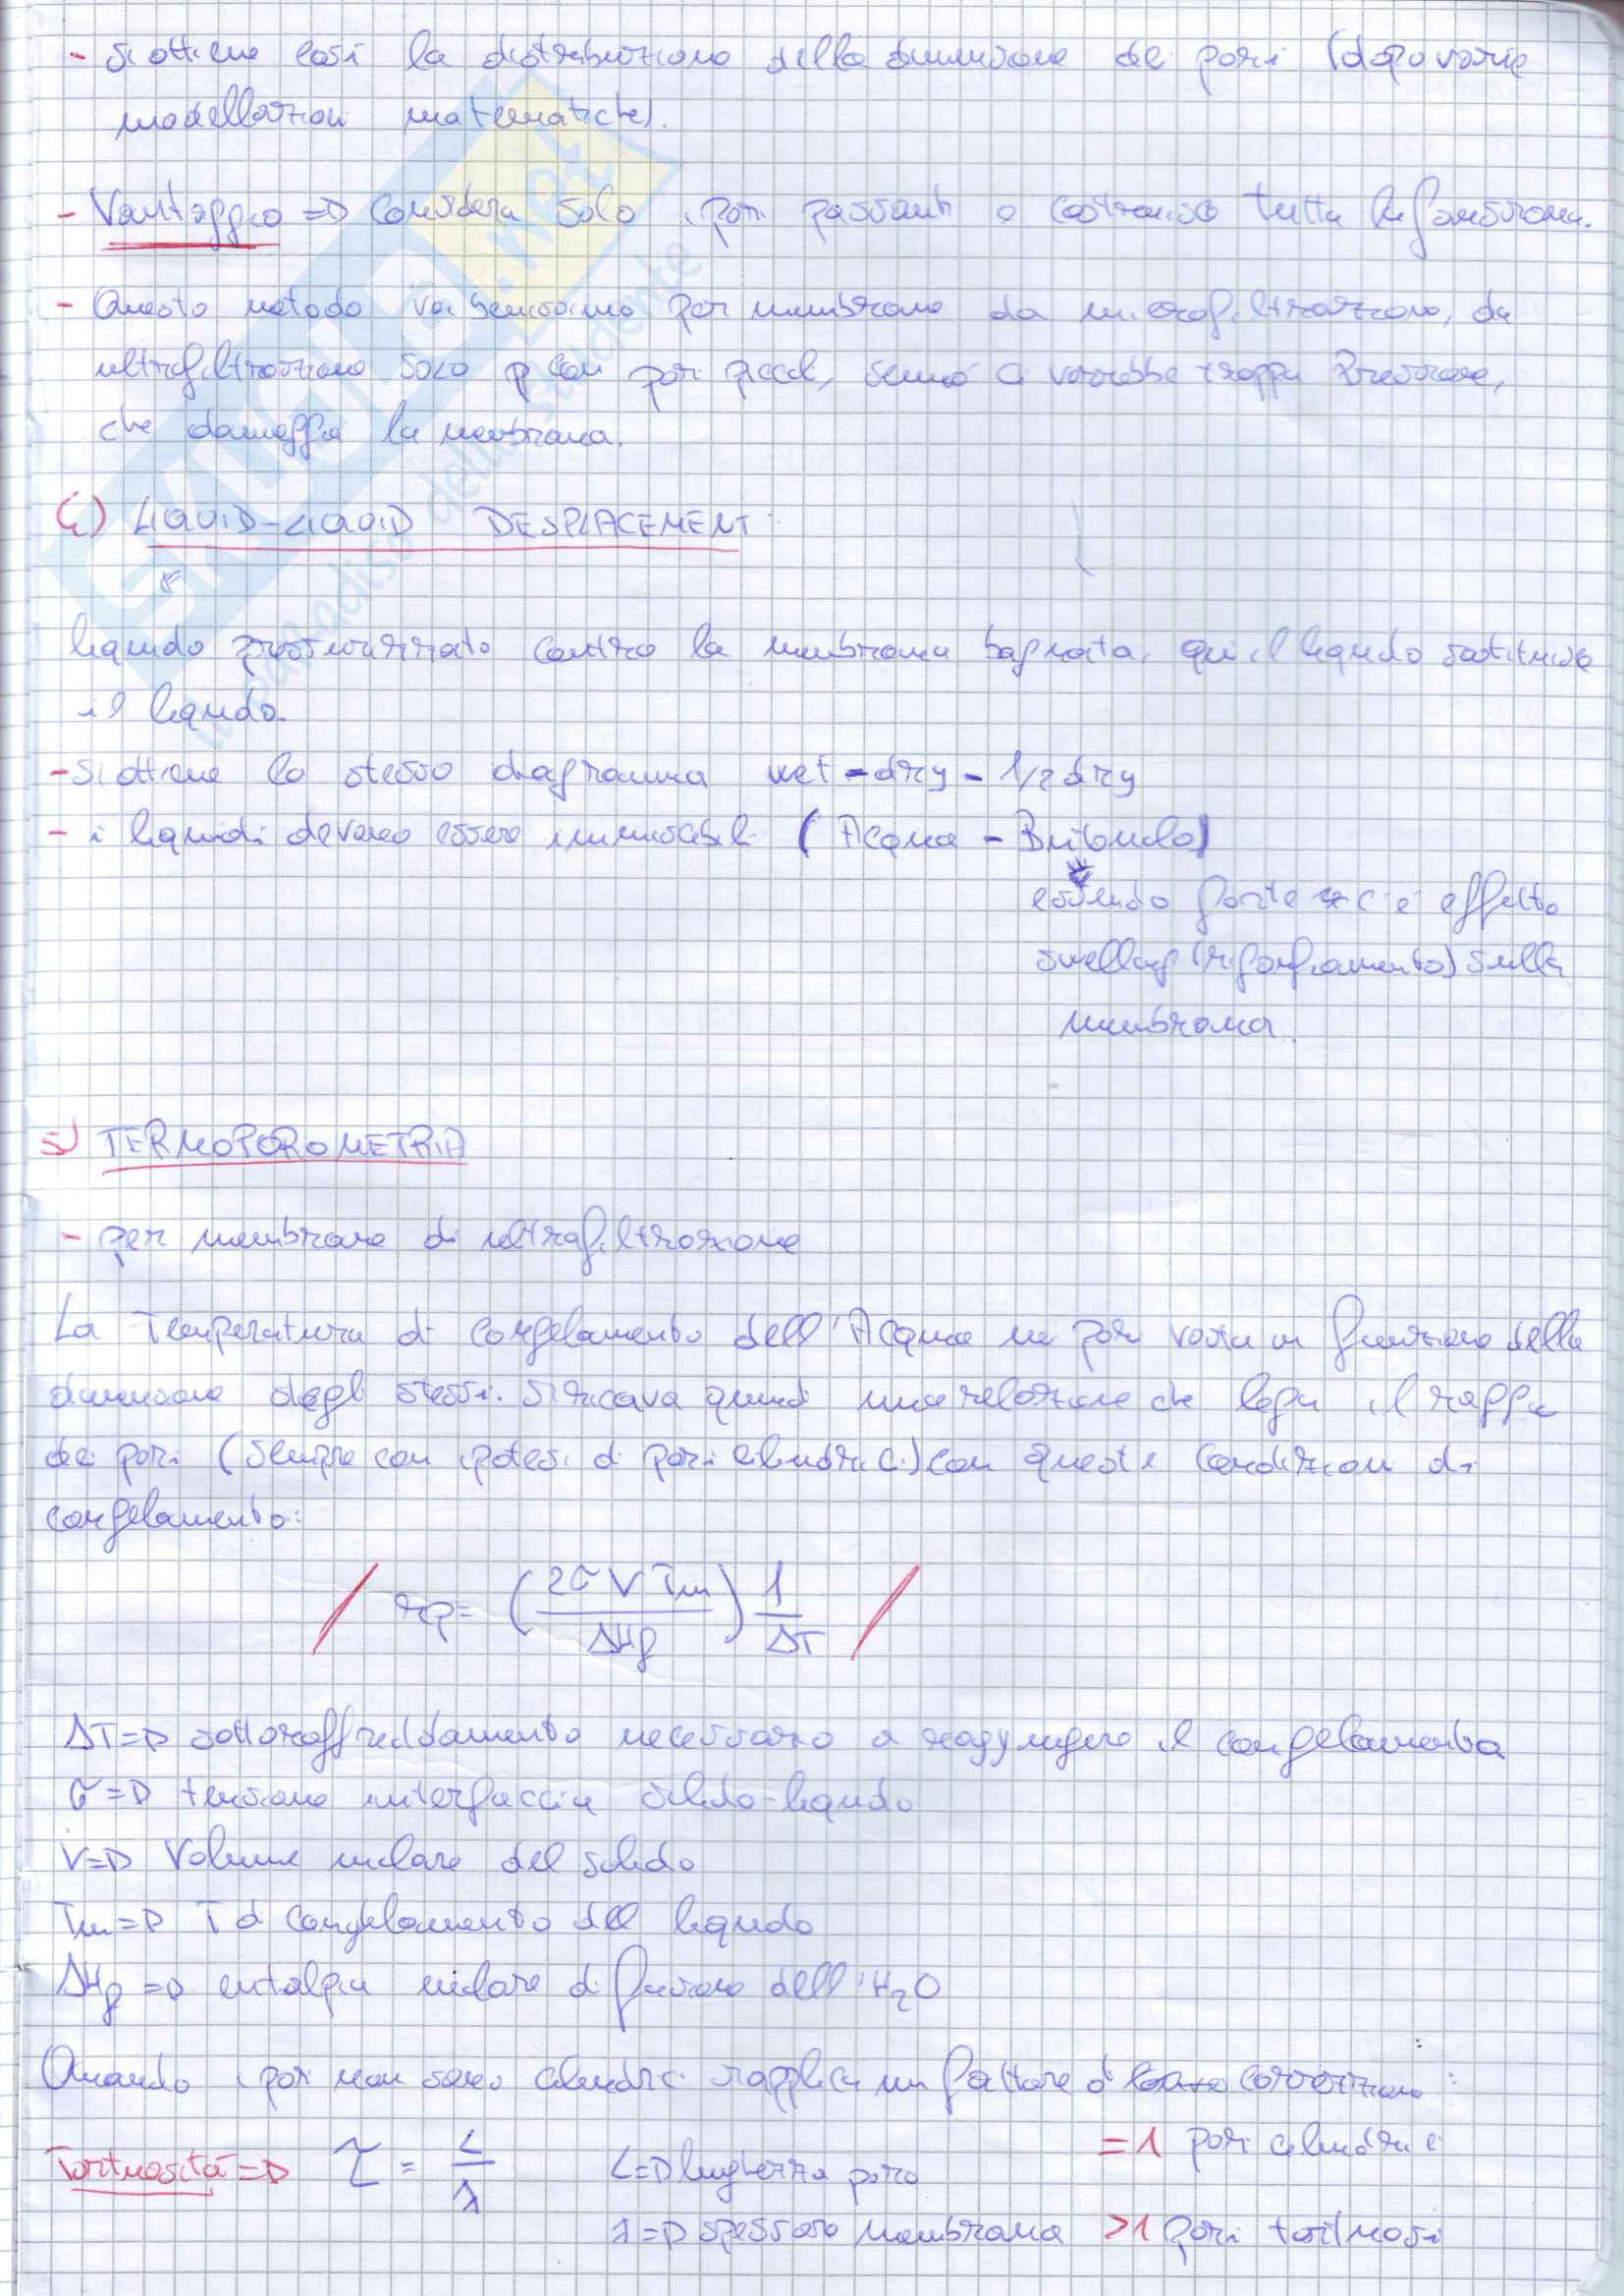 - Si ottiene così la distribuzione della dimensione dei pori (dopo varie
modellazioni matematiche).
- Vantaggio => Considera solo i pori passanti e costruisce tutta la funzione.
- Questo metodo va benissimo per membrane da microfiltrazione, da
ultrafiltrazione solo con pori piccoli, sennò ci vorrebbe troppa Pressione,
che danneggia la membrana.
4) LIQUID-LIQUID DESPLACEMENT:
liquido pressurizzato contro la membrana bagnata, qui il liquido sostituisce
il liquido.
- Si ottiene lo stesso diagramma wet - dry - 1/2 dry
- i liquidi devono essere immiscibili (Acqua -
essendo forte c'è effetto
swelling (rigonfiamento) sulla
membrana.
5) TERMOPOROMETRIA
- per membrane di ultrafiltrazione
La Temperatura di congelamento dell'Acqua in pori varia in funzione della
dimensione degli stessi. Si ricava quindi una relazione che lega il raggio
dei pori (sempre con ipotesi di pori cilindrici) con queste condizioni di
congelamento:
/ rp = (2σ V Tm / ΔHf) 1/ΔT /
ΔT => sottoraffreddamento necessario a raggiungere il congelamento
σ => tensione interfaccia solido-liquido
V => Volume molare del solido
Tm => T di congelamento del liquido
ΔHf => entalpia molare di fusione dell'H2O
Quando i pori non sono cilindrici si applica un fattore di correzione:
Tortuosità => τ = L/λ L => lunghezza poro =1 pori cilindrici
λ => spessore membrana >1 pori tortuosi
SKUOLA.net
il paradiso dello studente